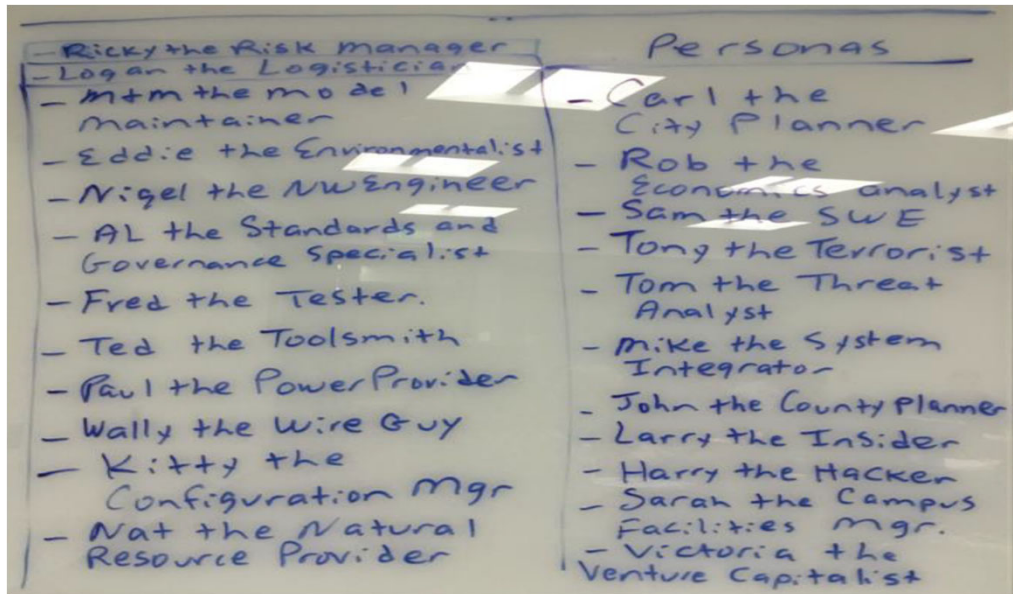 - Ricky the Risk manager
- Logan the Logistician
- MtM the model
maintainer
- Eddie the Environmentalist
- Nigel the NW Engineer
- AL the Standards and
Governance Specialist
- Fred the Tester.
- Ted the Toolsmith
- Paul the Power Provider
- Wally the Wire Guy
- Kitty the
Configuration Mgr
- Nat the Natural
Resource Provider
Personas
- Carl the
City Planner
- Rob the
Economics analyst
- Sam the SWE
- Tony the Terrorist
- Tom the Threat
Analyst
- Mike the System
Integrator
- John the County Planner
- Larry the Insider
- Harry the Hacker
- Sarah the Campus
Facilities Mgr.
- Victoria the
Venture Capitalist